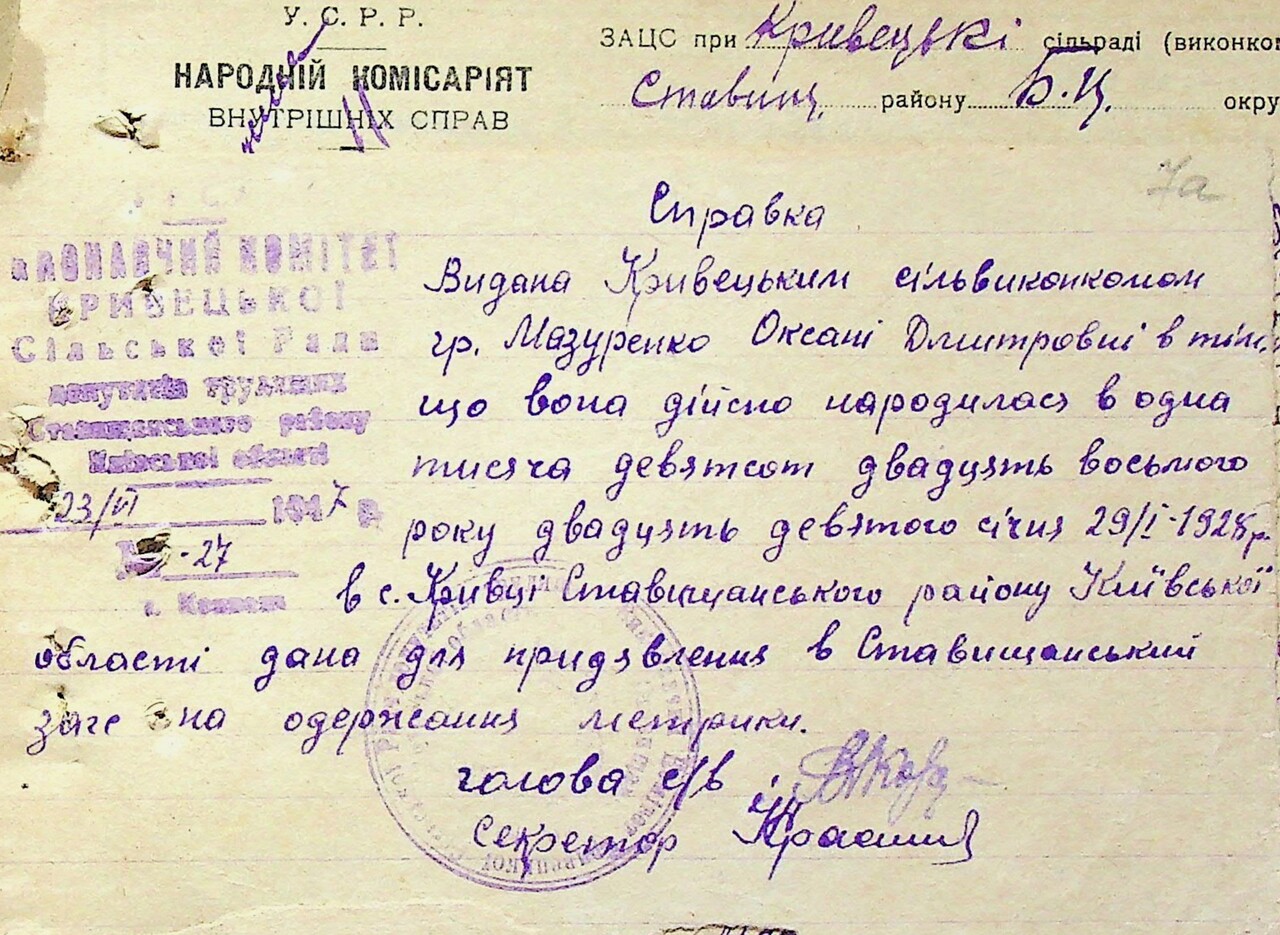 У. С. Р. Р.
НАРОДНІЙ КОМІСАРІЯТ
ВНУТРІШНІХ СПРАВ
ЗАЦС при Кривецькі сільраді (виконком
Ставищ. району Б.Ц. окру
7а
КОНАВЧИЙ КОМІТЕТ
КРИВЕЦЬКОЇ
Сільської Ради
депутатів трудящих
Ставищанського району
Київської області
23/VI 1947 р
№ -27
Справка
Видана Кривецьким сільвиконкомом
гр. Мазуренко Оксані Дмитровні в тім,
що вона дійсно народилася в одна
тисяча девятсот двадцять восьмого
року двадцять девятого січня 29/I-1928 р.
в с. Кривці Ставищанського району Київської
області дана для придявлення в Ставищанський
загс на одержання метрики.
голова с/в
Секретор